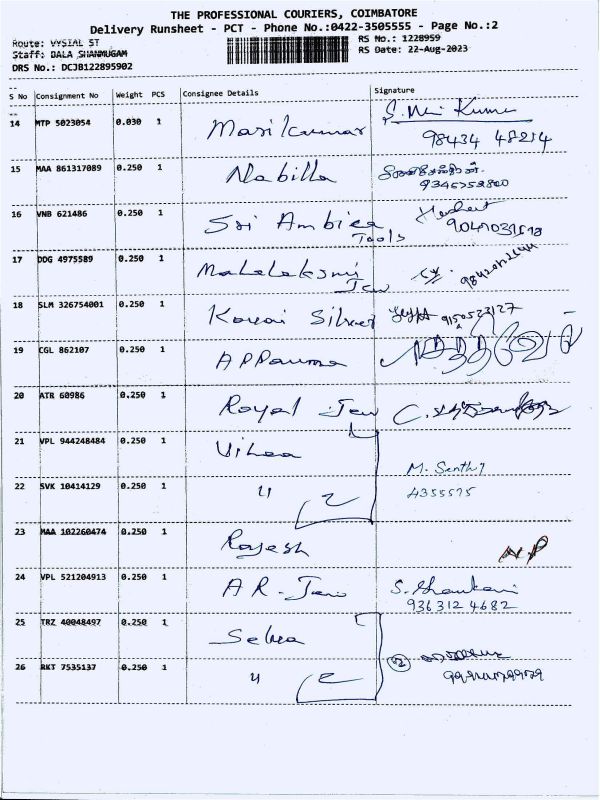 THE PROFESSIONAL COURIERS, COIMBATORE
Delivery Runsheet - PCT - Phone No.:0422-3505555 - Page No.:2
Route: VYSIAL ST
RS No.: 1228959
Staff: BALA SHANMUGAM
RS Date: 22-Aug-2023
DRS No.: DCJB122895902
S No Consignment No Weight PCS Consignee Details Signature
14 MTP 5023054 0.030 1 Marikumar S. Mni Kumar
98434 48214
15 MAA 861317089 0.250 1 Nabilla
16 VNB 621486 0.250 1 Sri Ambica
Tools
17 DDG 4975589 0.250 1 Mahalaksmi
Jew
18 SLM 326754001 0.250 1 Kovai Silver 9150523127
19 CGL 862107 0.250 1
20 ATR 60986 0.250 1 Royal Jew
21 VPL 944248484 0.250 1
M. Senthil
22 SVK 10414129 0.250 1 " 2 4355575
23 MAA 102260474 0.250 1 Rajesh NP
24 VPL 521204913 0.250 1 AR-Jew S. Shankari
936312 4682
25 TRZ 40048497 0.250 1 Selva
26 RKT 7535137 0.250 1 " 2